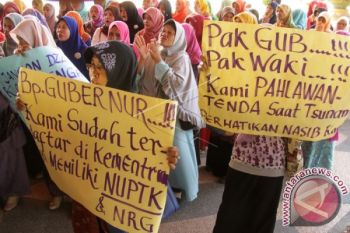 Bp. GUBERNUR...!!!
Kami Sudah ter
daftar di Kementrn
Memiliki NUPTK
& NRG
Pak GUB....!!!
Pak Waki....!!!
Kami PAHLAWAN-
TENDA Saat Tsunam
PERHATIKAN NASIB Ka
antaranews.com